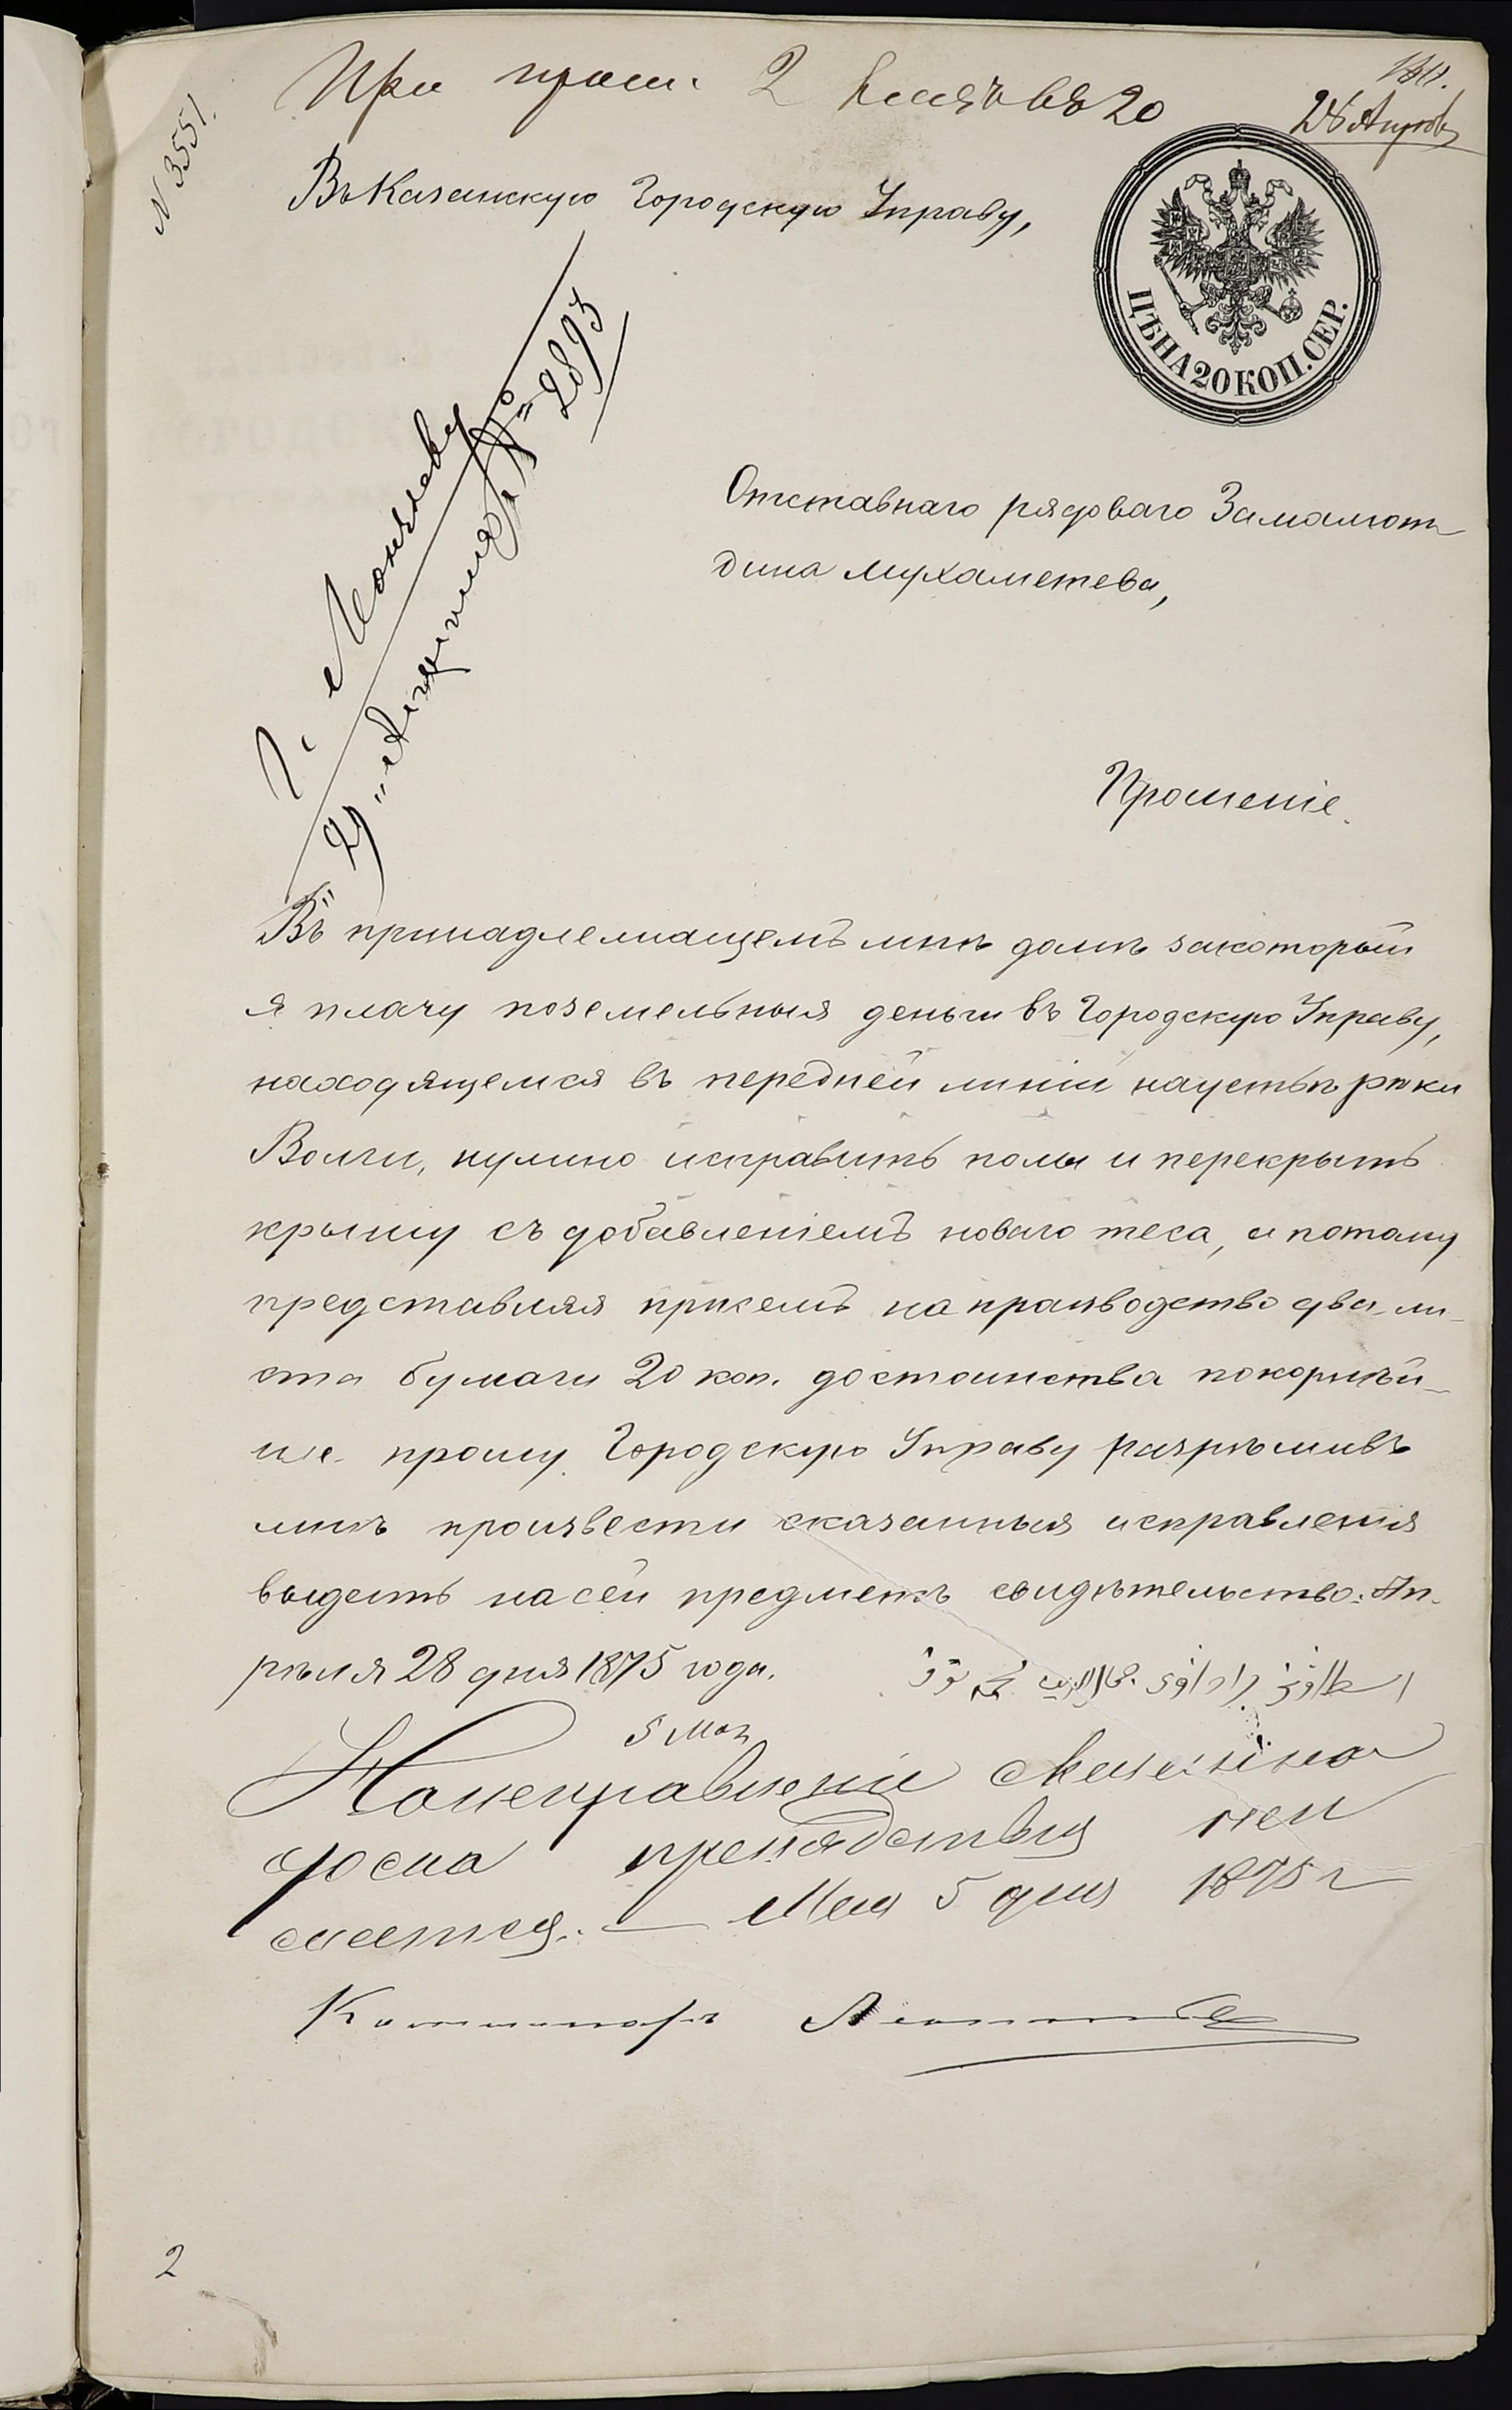 При прош. 2 листа въ 20
28 Апрѣля
N 3551.
Въ Казанскую Городскую Управу,
ЦѢНА 20 КОП. СЕР.
Г. Леонтьеву
29 Апрѣля № 2893
Отставнаго рядоваго Замалют
дина Мухаметева,
Прошеніе.
Въ принадлежащемъ мнѣ домѣ за который
я плачу поземельныя деньги въ Городскую Управу,
находящемся въ передней линіи на устьѣ рѣки
Волги, нужно исправить полы и перекрыть
крышу съ добавленіемъ новаго теса, а потому
представляя при семъ на производство два ли-
ста бумаги 20 коп. достоинства покорнѣй-
ше прошу Городскую Управу разрѣшивъ
мнѣ произвести сказанныя исправленія
выдать на сей предметъ свидѣтельство. Ап-
рѣля 28 дня 1875 года.
5 Мая
На исправленіе
дома препятствія неи
мѣется. — Мая 5 дня 1875 г
2